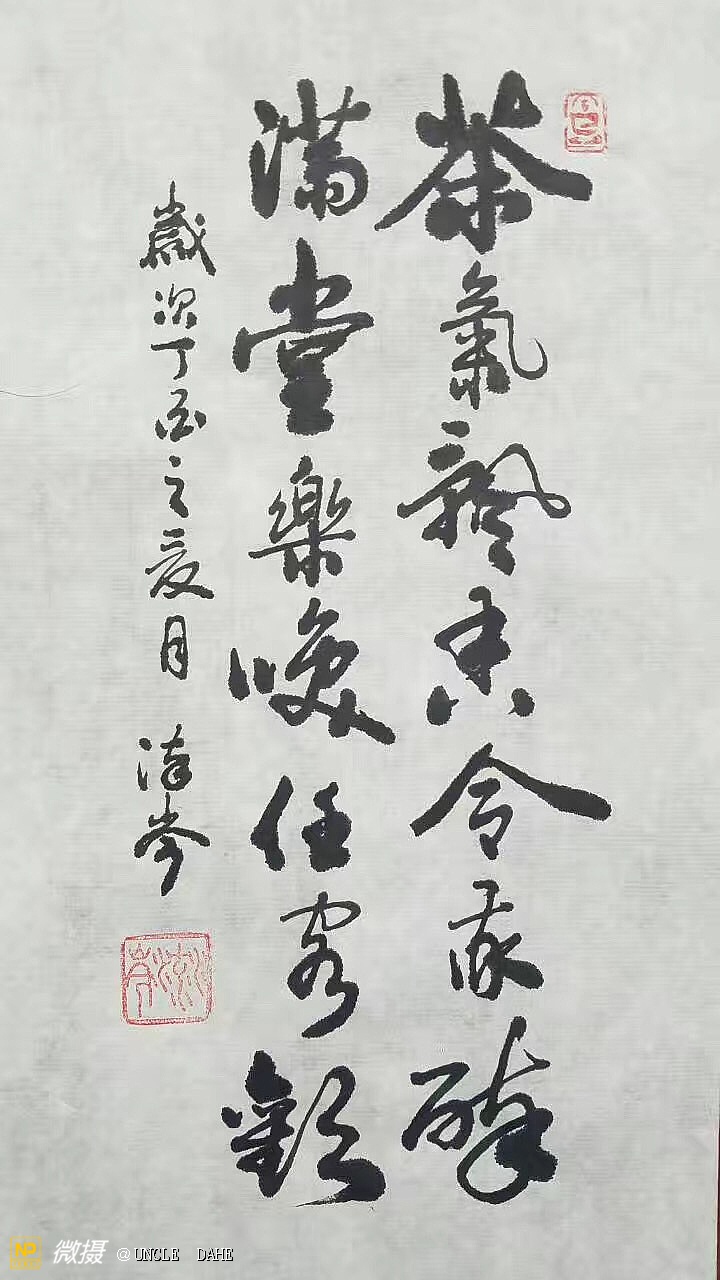 茶氣飄香令我醉
滿堂樂喚任客歡
歲次丁酉之夏月 岑
NP 微摄 @UNCLE DAHE